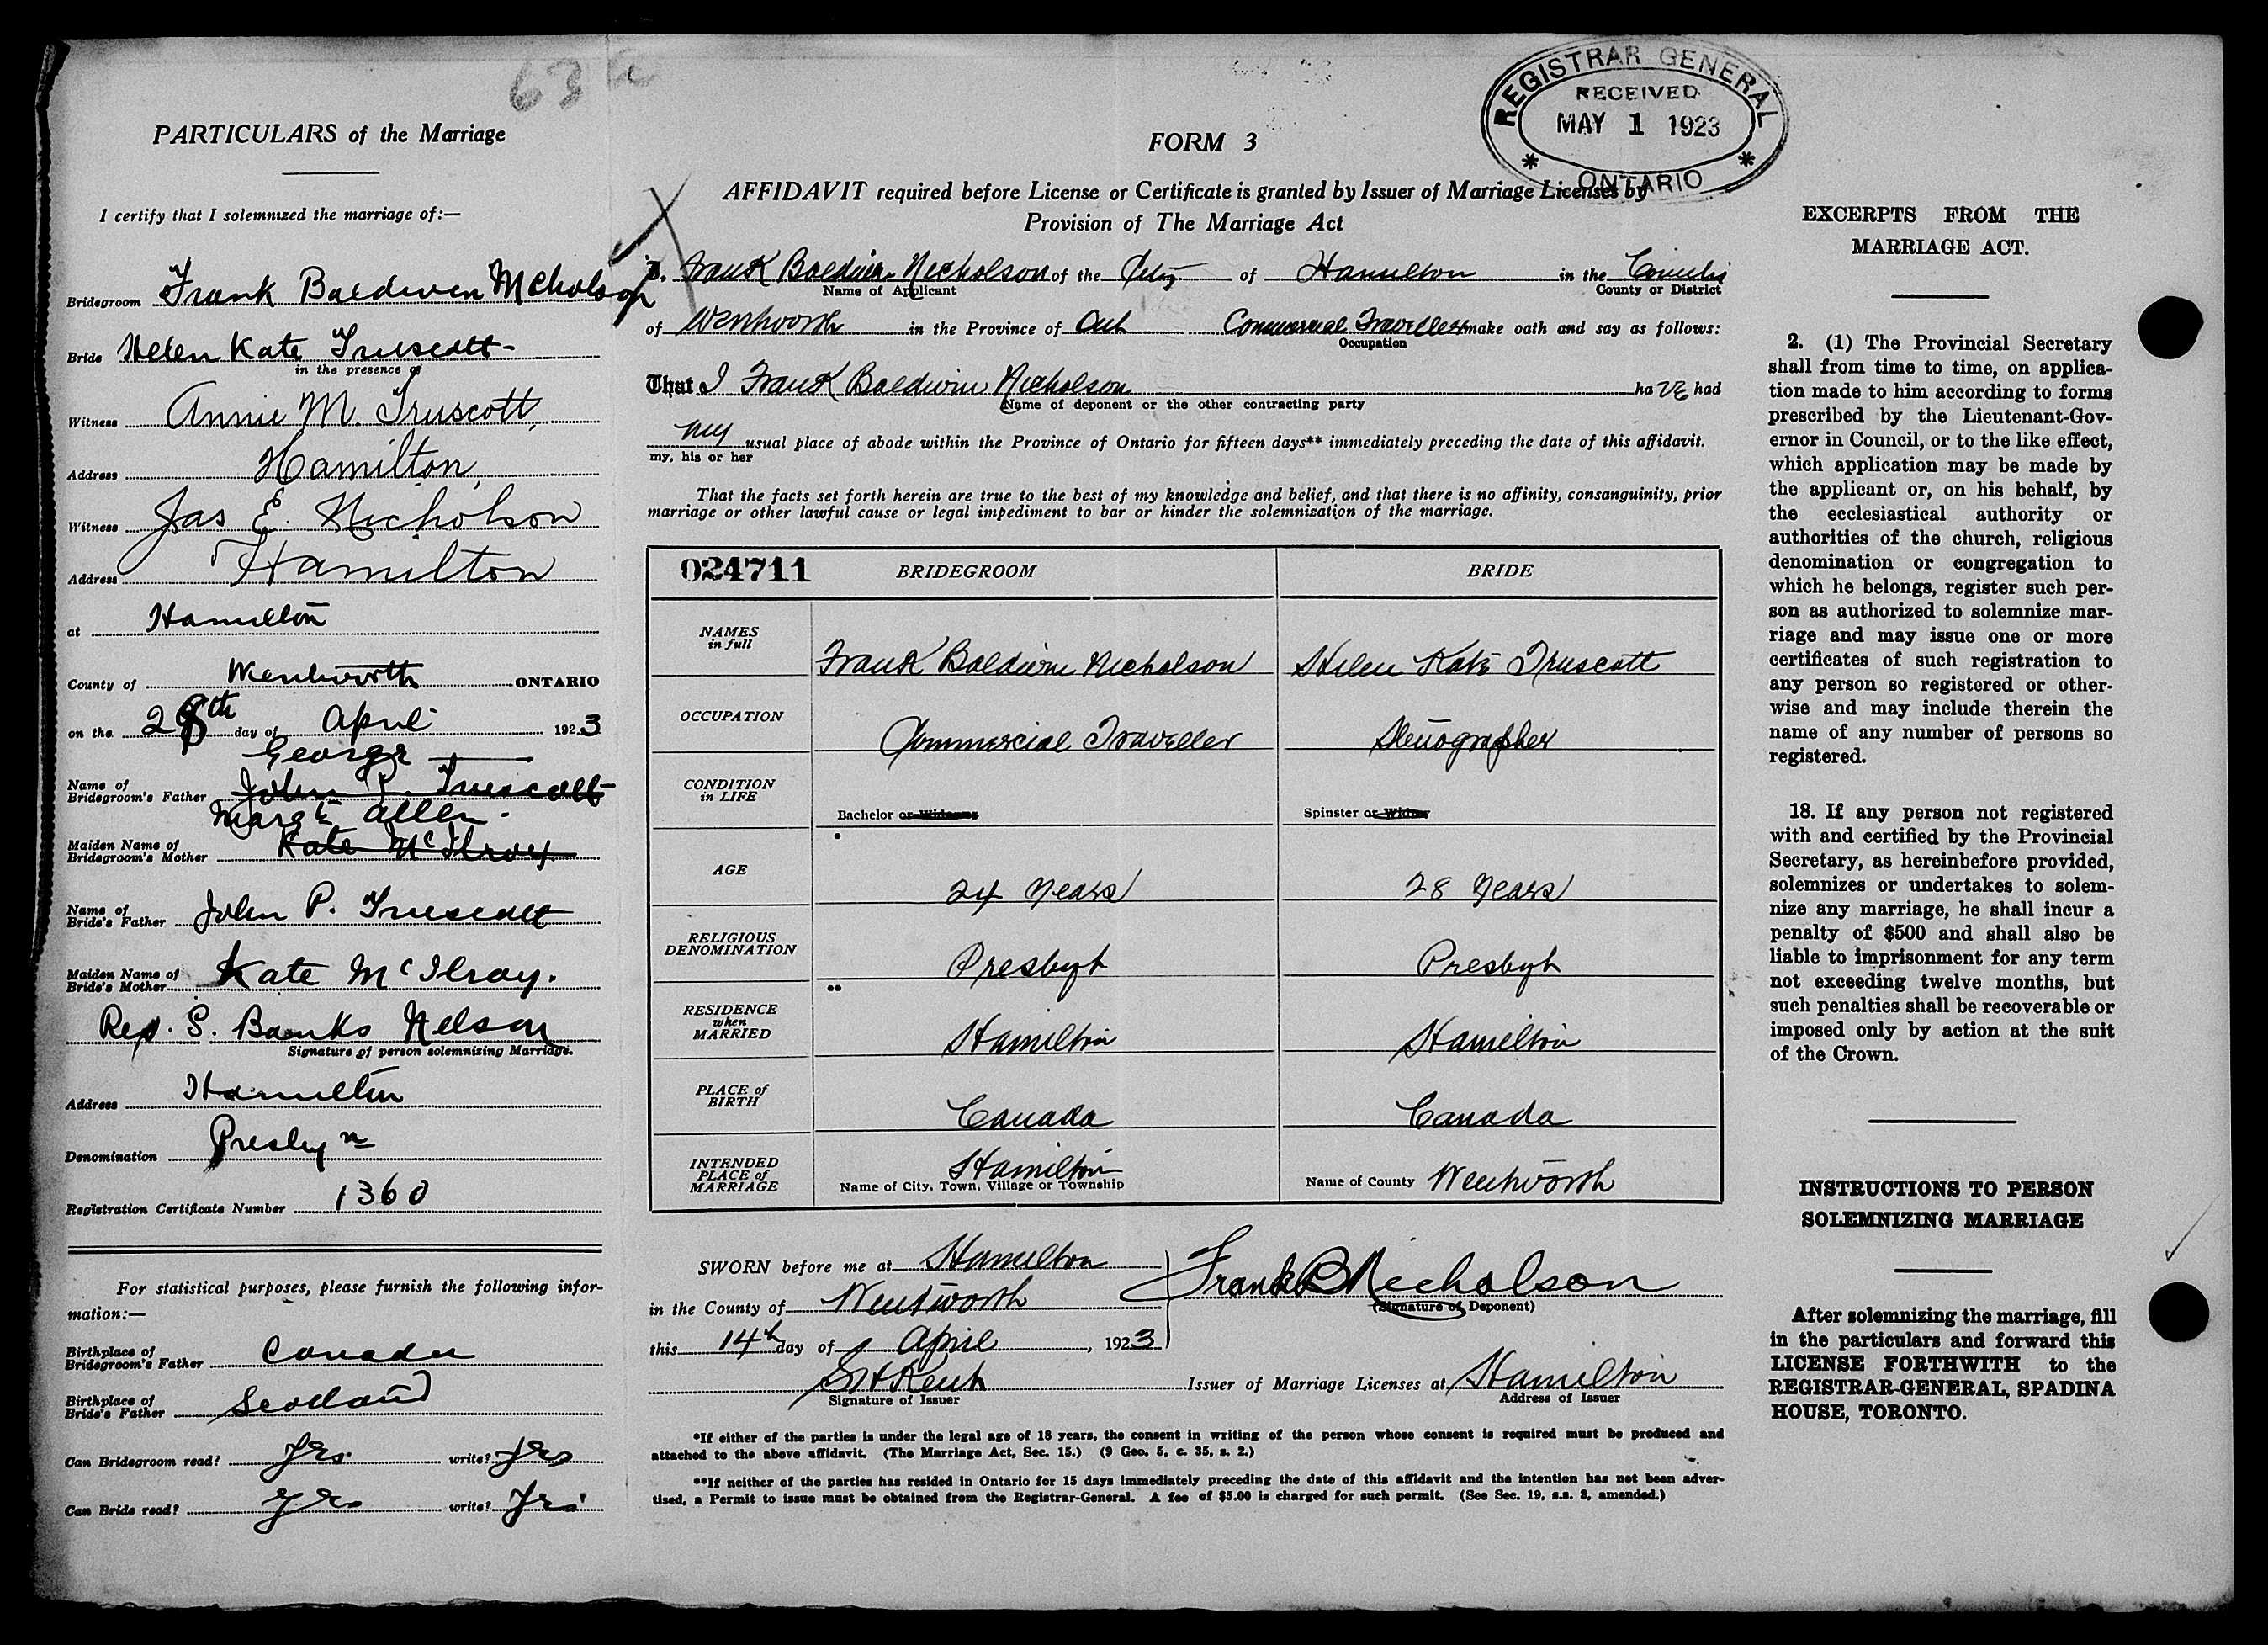 63
PARTICULARS of the Marriage
I certify that I solemnized the marriage of:—
Bridegroom Frank Baldwin Nicholson
Bride Helen Kate Truscott
in the presence of
Witness Annie M. Truscott,
Address Hamilton,
Witness Jas E. Nicholson
Address Hamilton
at Hamilton
County of Wentworth ONTARIO
on the 28th day of April 1923
George
Name of
Bridegroom's Father John P. Truscott
Margt Allen.
Maiden Name of
Bridegroom's Mother Kate McIlroy
Name of
Bride's Father John P. Truscott
Maiden Name of
Bride's Mother Kate McIlroy.
Rev. S. Banks Nelson
Signature of person solemnizing Marriage.
Address Hamilton
Denomination Presbyn
Registration Certificate Number 1360
For statistical purposes, please furnish the following infor-
mation:—
Birthplace of
Bridegroom's Father Canada
Birthplace of
Bride's Father Scotland
Can Bridegroom read? Yes write? Yes
Can Bride read? Yes write? Yes
REGISTRAR GENERAL
RECEIVED
MAY 1 1923
* ONTARIO *
FORM 3
AFFIDAVIT required before License or Certificate is granted by Issuer of Marriage Licenses by
Provision of The Marriage Act
I. Frank Baldwin Nicholson of the City of Hamilton in the County
Name of Applicant County or District
of Wentworth in the Province of Ont Commercial Traveller make oath and say as follows:
Occupation
That I Frank Baldwin Nicholson ha ve had
Name of deponent or the other contracting party
my usual place of abode within the Province of Ontario for fifteen days** immediately preceding the date of this affidavit.
my, his or her
That the facts set forth herein are true to the best of my knowledge and belief, and that there is no affinity, consanguinity, prior
marriage or other lawful cause or legal impediment to bar or hinder the solemnization of the marriage.
024711 BRIDEGROOM BRIDE
NAMES
in full
Frank Baldwin Nicholson Helen Kate Truscott
OCCUPATION
Commercial Traveller Stenographer
CONDITION
in LIFE
Bachelor or Widower Spinster or Widow
*
AGE
24 Years 28 Years
RELIGIOUS
DENOMINATION
Presbyt Presbyt
**
RESIDENCE
when
MARRIED
Hamilton Hamilton
PLACE of
BIRTH
Canada Canada
INTENDED
PLACE of
MARRIAGE
Hamilton
Name of City, Town, Village or Township Name of County Wentworth
SWORN before me at Hamilton
in the County of Wentworth
this 14th day of April, 1923
Frank B Nicholson
(Signature of Deponent)
Issuer of Marriage Licenses at Hamilton
Signature of Issuer Address of Issuer
*If either of the parties is under the legal age of 18 years, the consent in writing of the person whose consent is required must be produced and
attached to the above affidavit. (The Marriage Act, Sec. 15.) (9 Geo. 5, c. 35, s. 2.)
**If neither of the parties has resided in Ontario for 15 days immediately preceding the date of this affidavit and the intention has not been adver-
tised, a Permit to issue must be obtained from the Registrar-General. A fee of $5.00 is charged for such permit. (See Sec. 19, s.s. 3, amended.)
EXCERPTS FROM THE
MARRIAGE ACT.
2. (1) The Provincial Secretary
shall from time to time, on applica-
tion made to him according to forms
prescribed by the Lieutenant-Gov-
ernor in Council, or to the like effect,
which application may be made by
the applicant or, on his behalf, by
the ecclesiastical authority or
authorities of the church, religious
denomination or congregation to
which he belongs, register such per-
son as authorized to solemnize mar-
riage and may issue one or more
certificates of such registration to
any person so registered or other-
wise and may include therein the
name of any number of persons so
registered.
18. If any person not registered
with and certified by the Provincial
Secretary, as hereinbefore provided,
solemnizes or undertakes to solem-
nize any marriage, he shall incur a
penalty of $500 and shall also be
liable to imprisonment for any term
not exceeding twelve months, but
such penalties shall be recoverable or
imposed only by action at the suit
of the Crown.
INSTRUCTIONS TO PERSON
SOLEMNIZING MARRIAGE
After solemnizing the marriage, fill
in the particulars and forward this
LICENSE FORTHWITH to the
REGISTRAR-GENERAL, SPADINA
HOUSE, TORONTO.